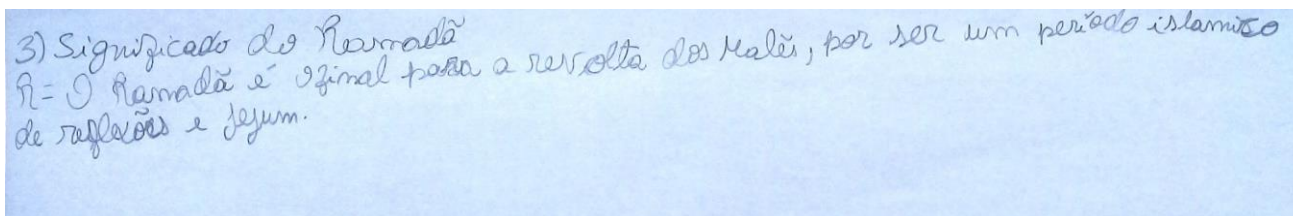 3) Significado do Ramadã
R= O Ramadã é o final para a revolta dos Malês, por ser um período islamico
de reflexões e jejum.